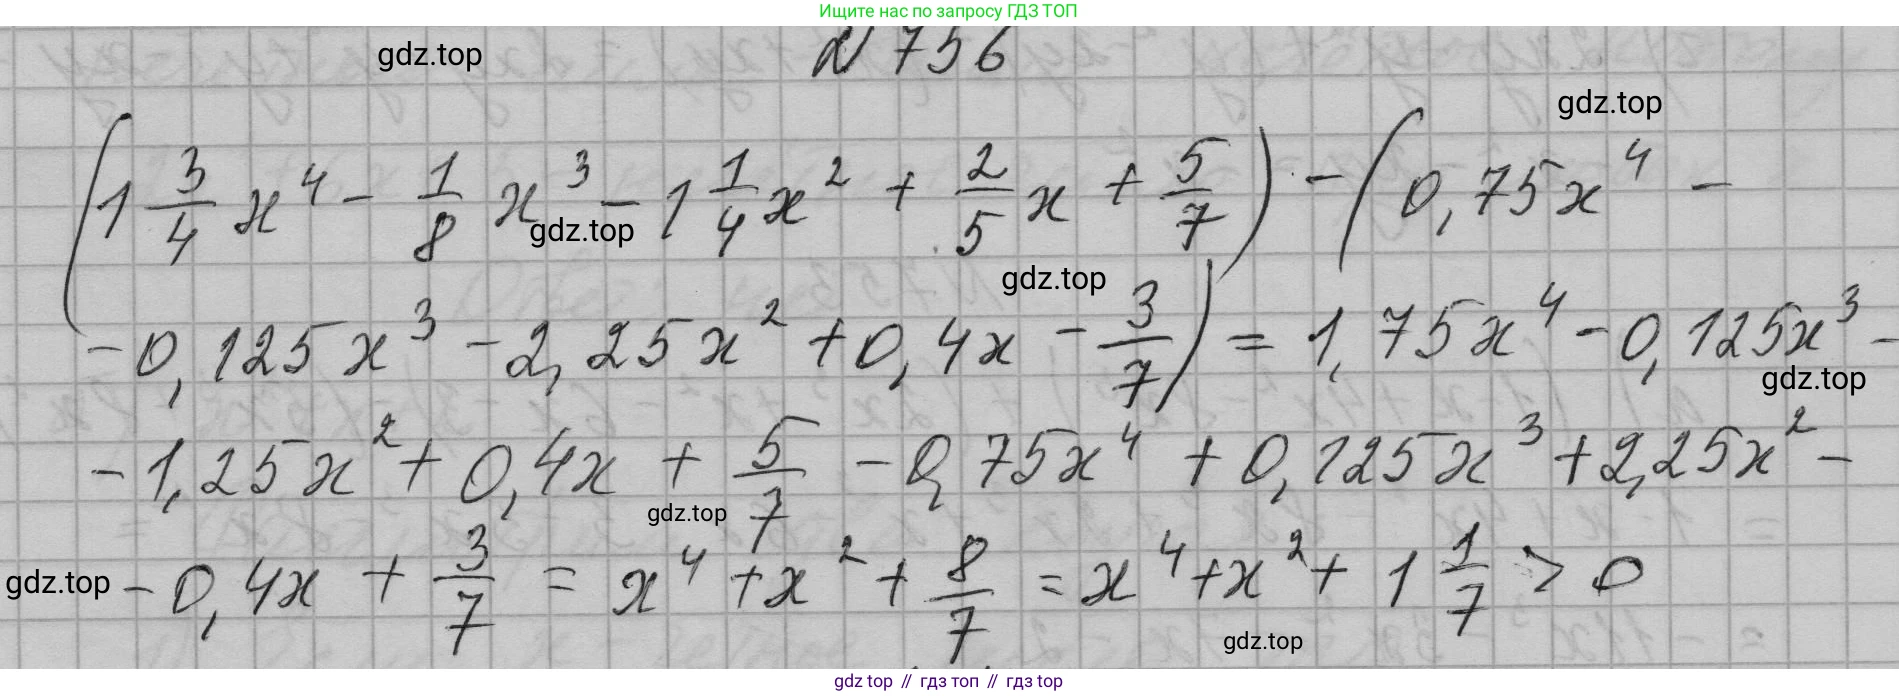 Ищите нас по запросу ГДЗ ТОП
gdz.top
N 756
gdz.top
(1 3/4 x⁴ - 1/8 x³ - 1 1/4 x² + 2/5 x + 5/7) - (0,75x⁴ -
gdz.top
gdz.top
- 0,125x³ - 2,25x² + 0,4x - 3/7) = 1,75x⁴ - 0,125x³ -
gdz.top
- 1,25x² + 0,4x + 5/7 - 0,75x⁴ + 0,125x³ + 2,25x² -
gdz.top
gdz.top
- 0,4x + 3/7 = x⁴ + x² + 8/7 = x⁴ + x² + 1 1/7 > 0
gdz.top
gdz top // гдз топ // гдз top